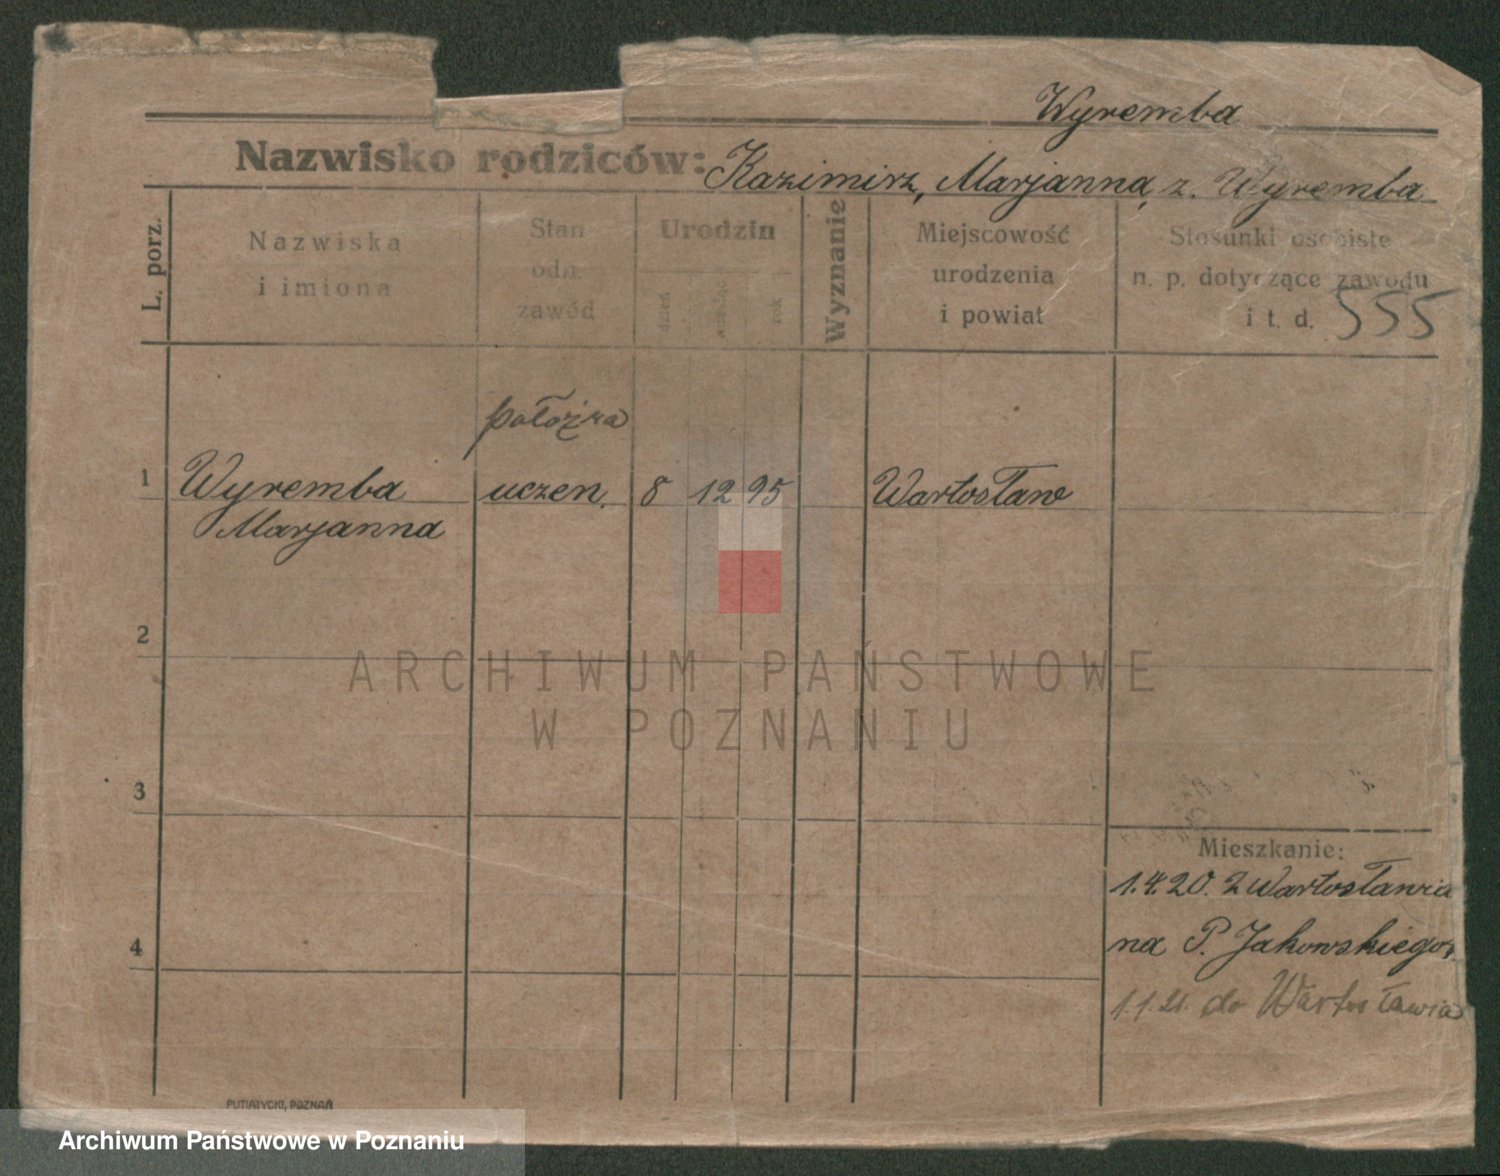 Wyremba
Nazwisko rodziców: Kazimirz, Marjanna, z. Wyremba
L. porz.
Nazwiska
i imiona
Stan
odn.
zawód
Urodzin
dzień
rok
Wyznanie
Miejscowość
urodzenia
i powiat
Stosunki osobiste
n. p. dotyczące zawodu
i t. d. 555
położna
1 Wyremba uczen. 8 12 95 Wartosław
Marjanna
2
ARCHIWUM PAŃSTWOWE
W POZNANIU
3
Mieszkanie:
1.4.20. z Wartosławia
na P. Jakowskiego
4
1.1.21. do Wartosławia
PUTIATYCKI, POZNAŃ
Archiwum Państwowe w Poznaniu